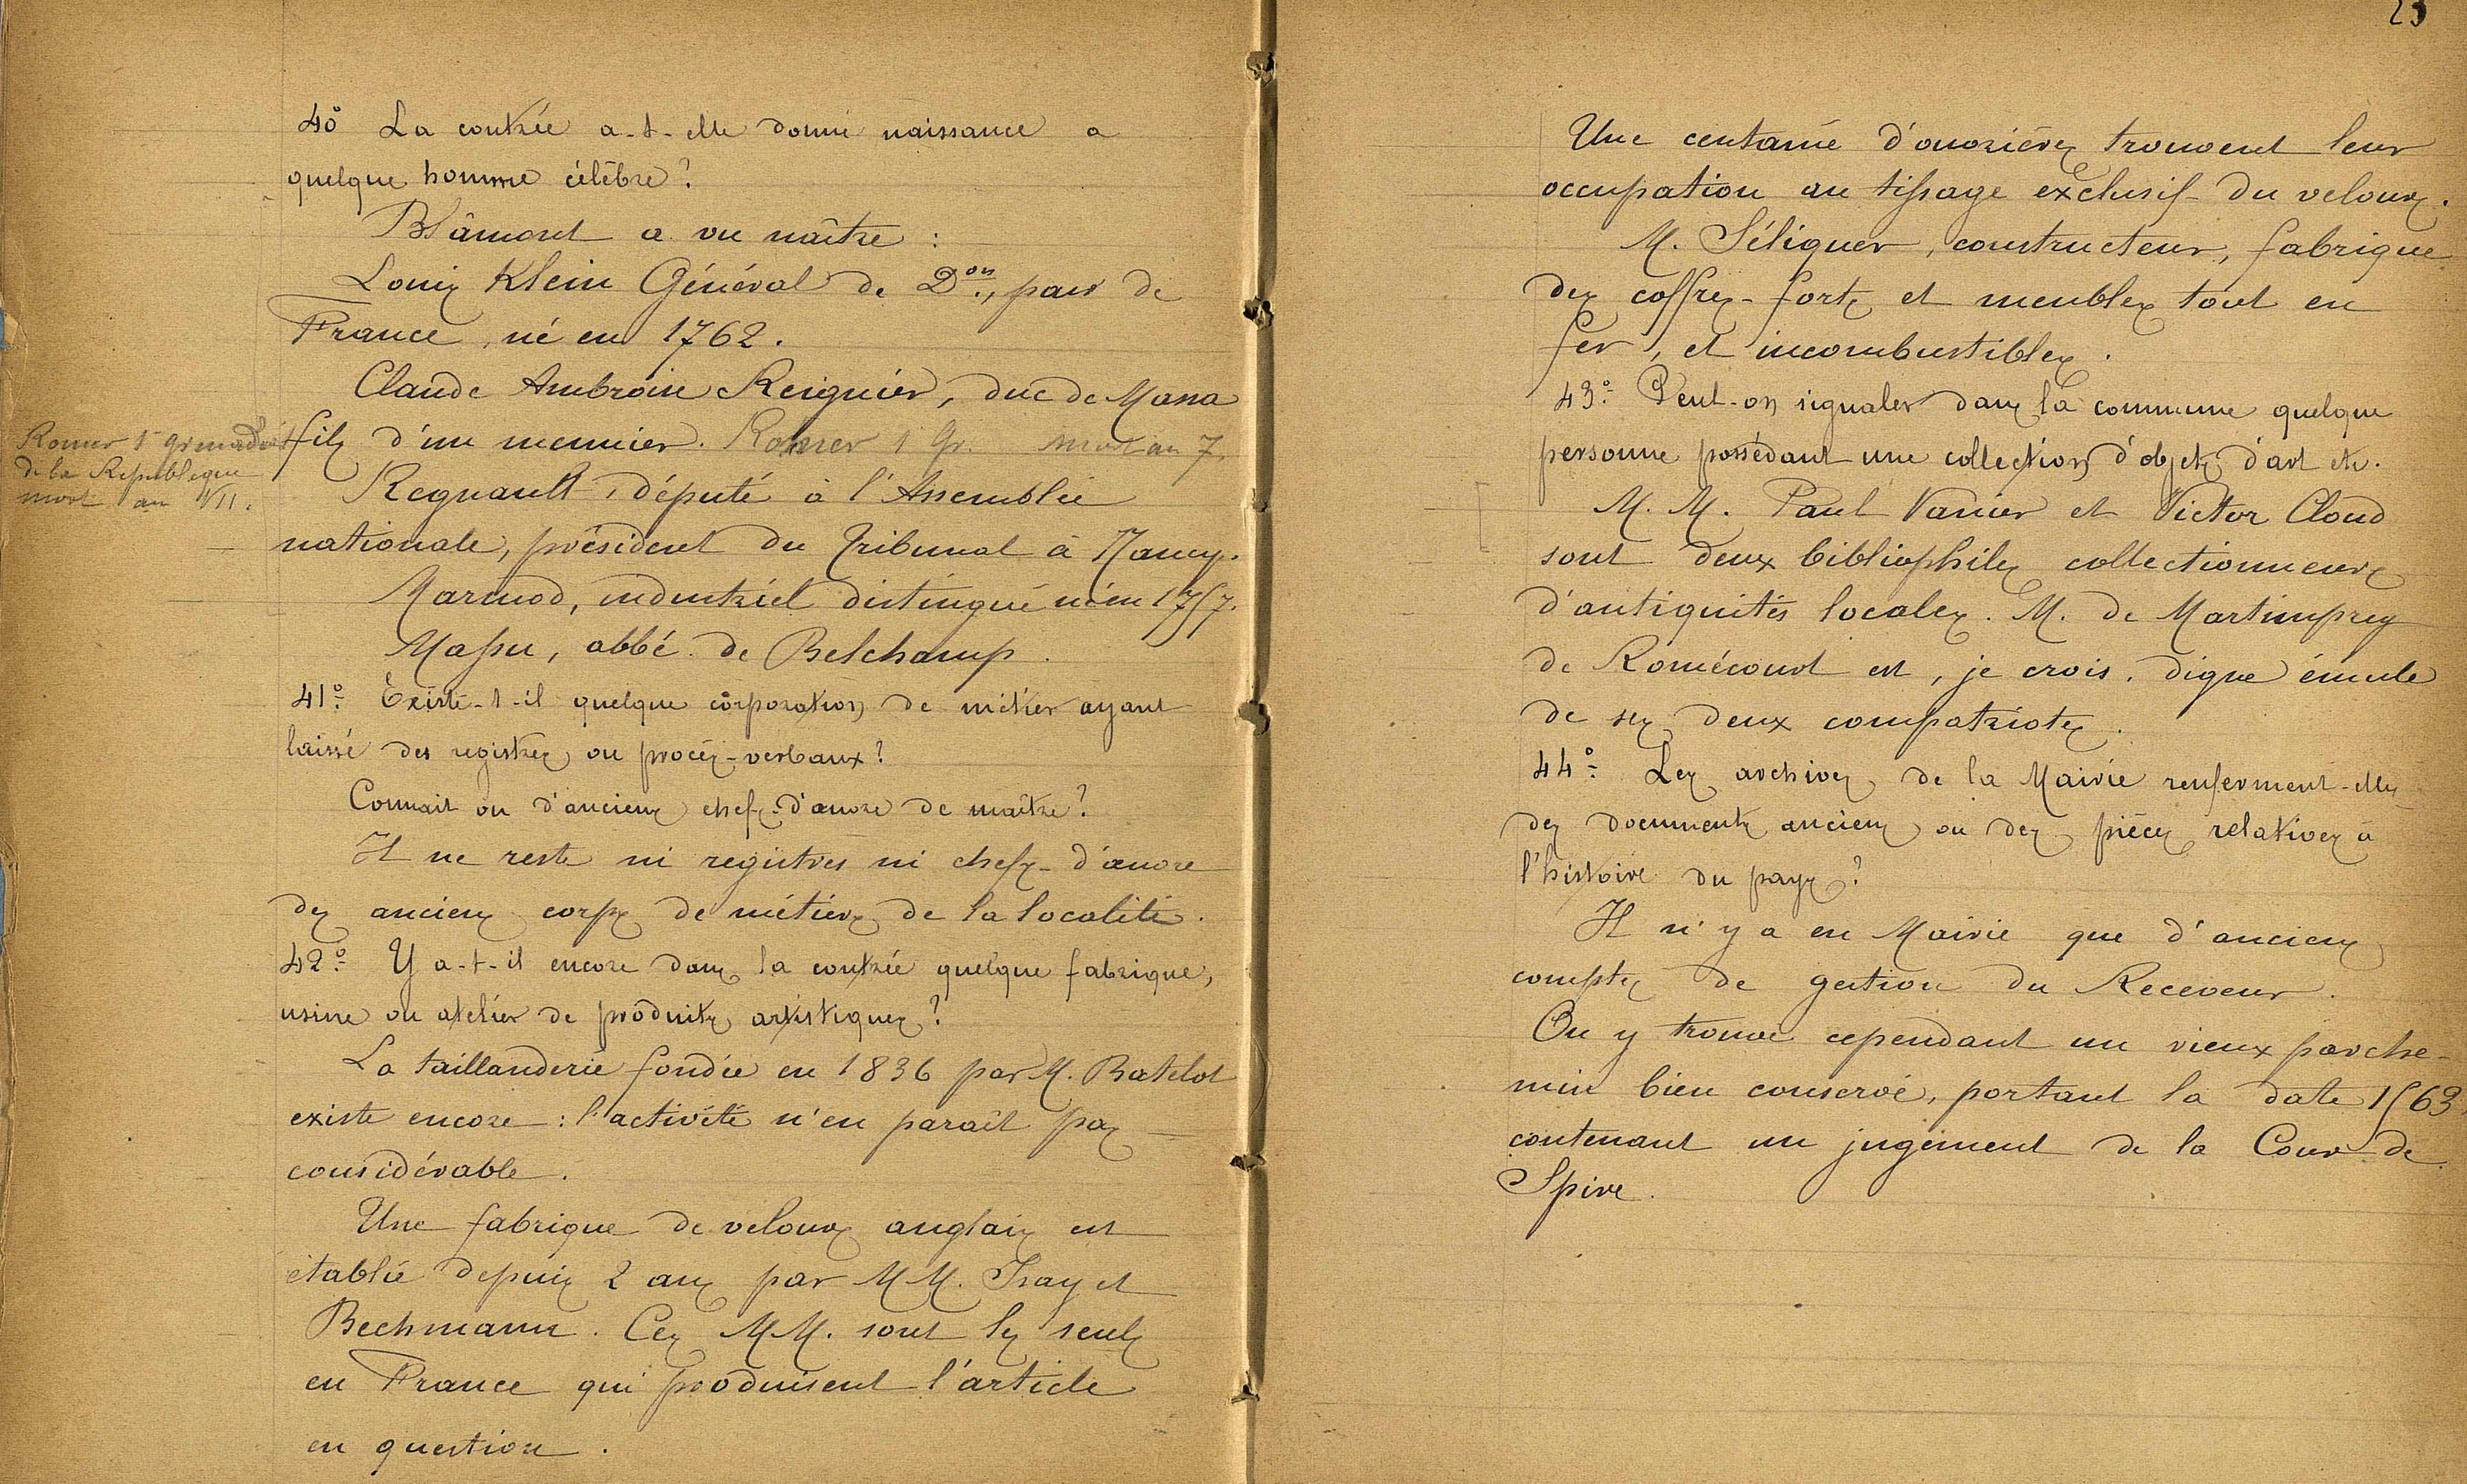 40° La contrée a-t-elle donné naissance a
quelque homme célèbre?
Blâmont a vu naître :
Louis Klein Général de D.on, pair de
France, né en 1762.
Claude Ambroise Reignier, duc de Massa
fils d'un meunier. Romer 1 Gr. mort an 7
Romer 1r grenadier
de la Republique
mort an VII.
Regnault, député à l'Assemblée
nationale, président du Tribunal à Nancy.
Marmod, industriel distingué né en 1757.
Massu, abbé de Belchamp.
41° Existe-t-il quelque corporation de métier ayant
laissé des registres ou procès-verbaux?
Connait on d'anciens chefs-d'œuvre de maître?
Il ne reste ni registres ni chefs-d'œuvre
des anciens corps de métiers de la localité.
42° Y a-t-il encore dans la contrée quelque fabrique,
usine ou atelier de produits artistiques?
La taillanderie fondée en 1836 par M. Batelot
existe encore : l'activité n'en paraît pas
considérable.
Une fabrique de velours anglais est
établie depuis 2 ans par MM. Isay et
Bechmann. Ces MM. sont les seuls
en France qui produisent l'article
en question.
25
Une centaine d'ouvrières trouvent leur
occupation au tissage exclusif du velours.
M. Séliquer, constructeur, fabrique
des coffres-forts et meubles tout en
fer, et incombustibles.
43° Peut-on signaler dans la commune quelque
personne possédant une collection d'objets d'art etc.
M. M. Paul Vanier et Victor Cloud
sont deux bibliophiles collectionneurs
d'antiquités locales. M. de Martimprey
de Romécourt est, je crois, digne émule
de ses deux compatriotes.
44° Les archives de la Mairie renferment-elles
des documents anciens ou des pièces relatives à
l'histoire du pays?
Il n'y a en Mairie que d'anciens
comptes de gestion du Receveur.
On y trouve cependant un vieux parche-
min bien conservé, portant la date 1563,
contenant un jugement de la Cour de
Spire.